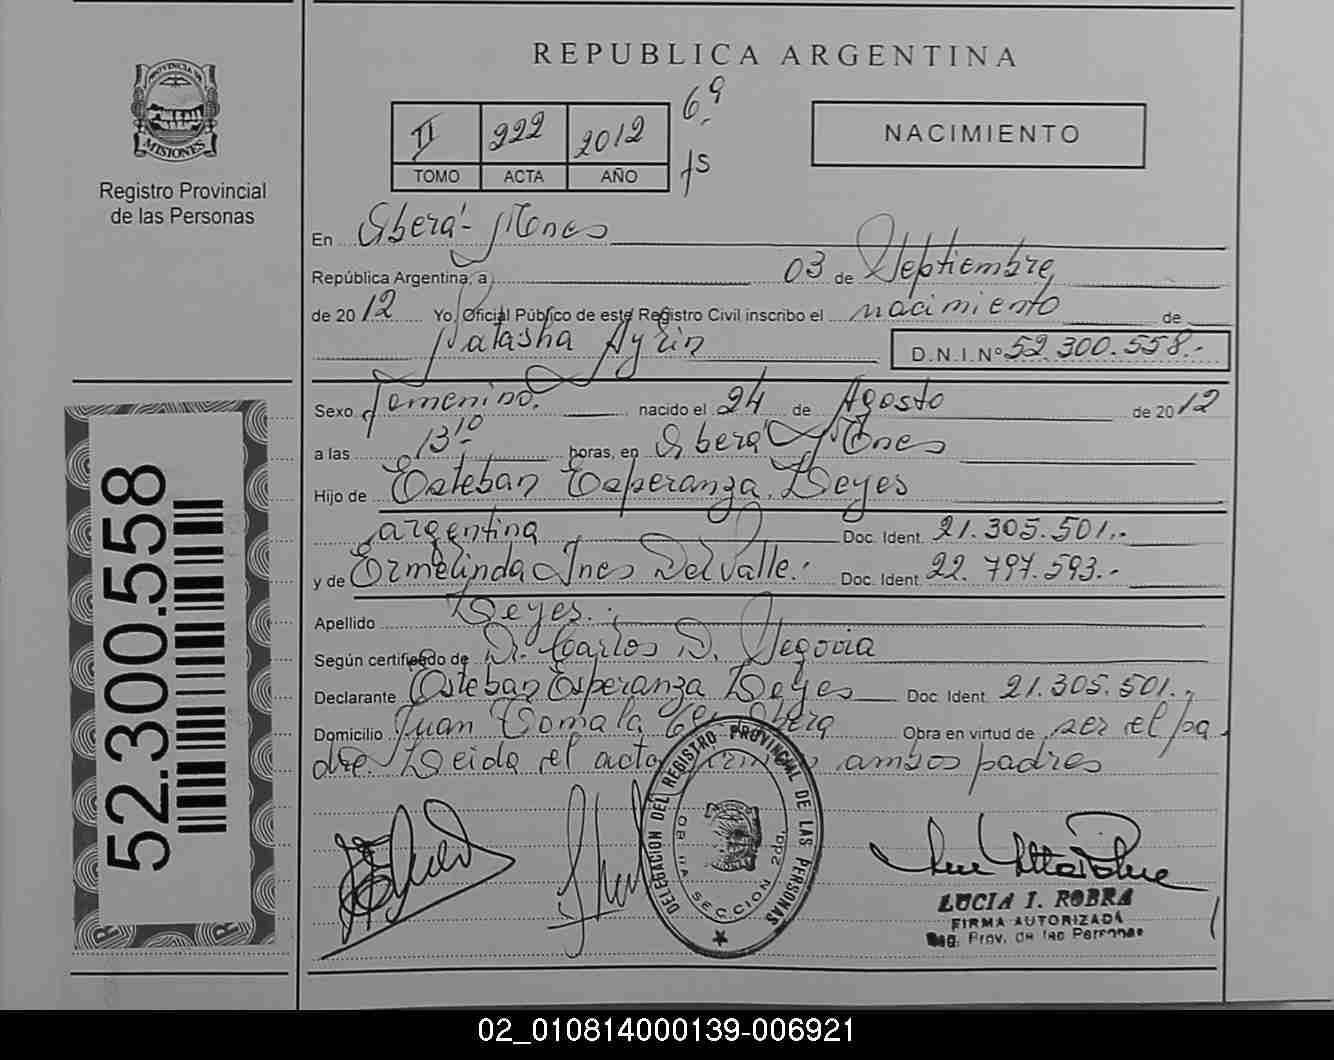 REPUBLICA ARGENTINA
PROVINCIA DE
MISIONES
Registro Provincial
de las Personas
II 222 2012 6º
TOMO ACTA AÑO fs
NACIMIENTO
En Oberá - Mnes
República Argentina, a 03 de Septiembre
de 2012 Yo, Oficial Público de este Registro Civil inscribo el nacimiento de
Natasha Ayrin D.N.I. Nº 52.300.558.-
Sexo Femenino. nacido el 24 de Agosto de 2012
a las 13 10 horas, en Oberá Mnes
Hijo de Esteban Esperanza Leyes
argentina Doc. Ident. 21.305.501.-
y de Ermelinda Ines Del Valle. Doc. Ident. 22.797.593.-
Apellido Leyes.
Según certificado de Dr. Carlos D. Segovia
Declarante Esteban Esperanza Leyes Doc. Ident. 21.305.501.-
Domicilio Juan Obera Obra en virtud de ser el pa
dre. Leida el acta firman ambos padres
52.300.558
DELEGACION DEL REGISTRO PROVINCIAL DE LAS PERSONAS
OBERA SECCION 2da.
LUCIA I. ROBRA
FIRMA AUTORIZADA
Reg. Prov. de las Personas
02_010814000139-006921